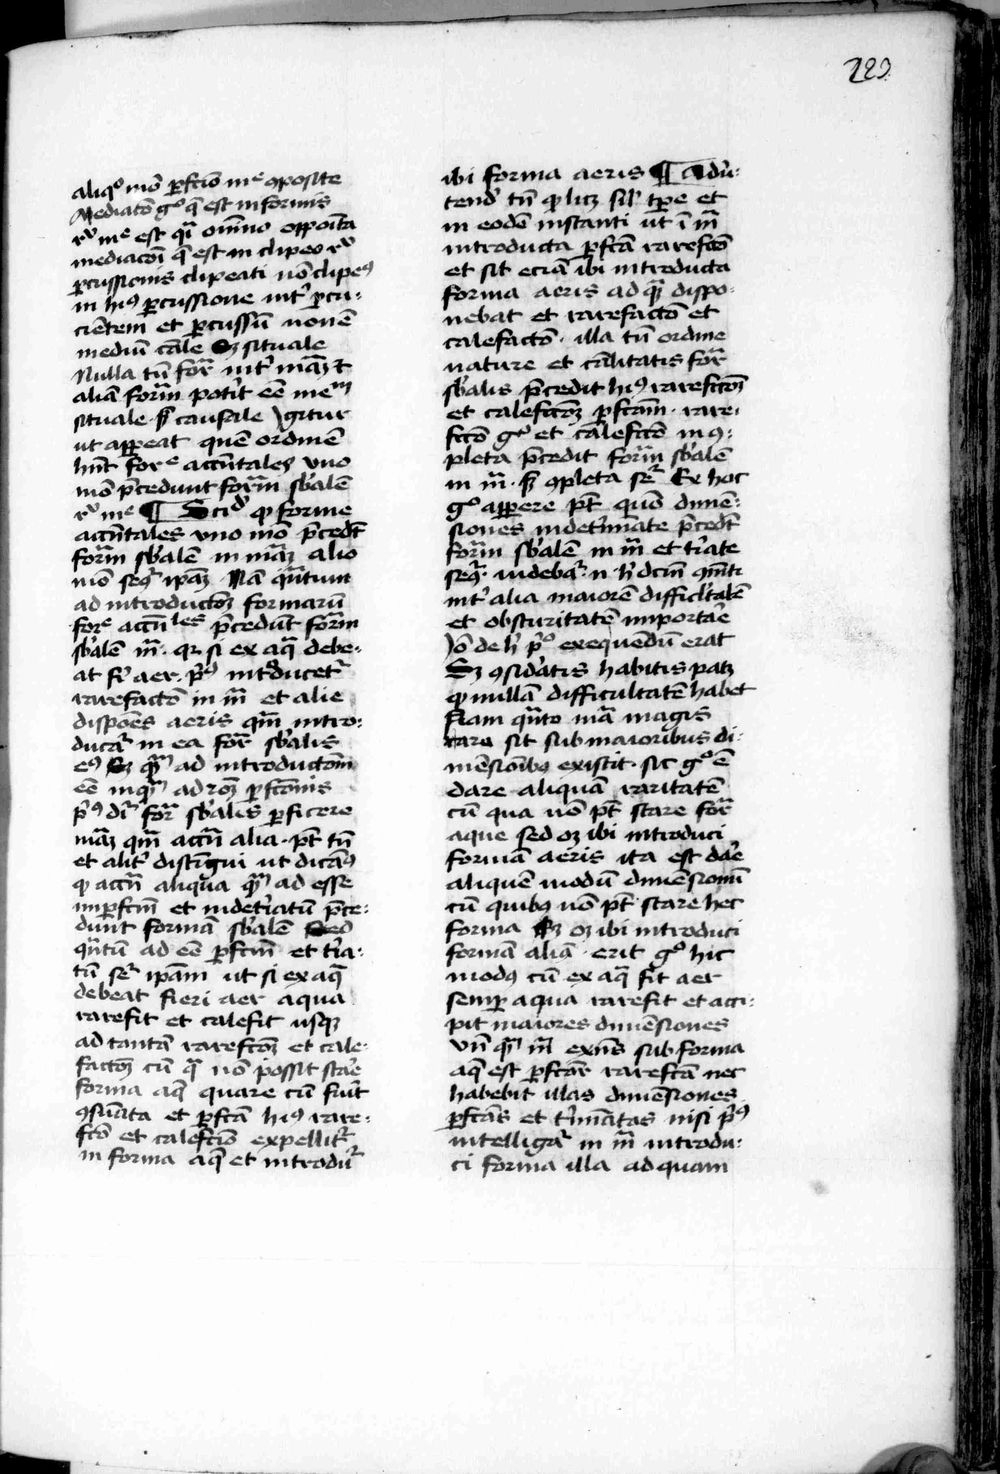 223
aliqͦ mō ꝑfctō mͤ ꝯposite
Mediatō gͦ q̄ est in formis
mͤ est qͣ om̄no opposita
mediacōi q̄ est in clipeo
ꝑcussionis clipeati nō clipeꝰ
in hiꝰ ꝑcussione int̓ ꝑcu-
cientem et ꝑcussū non ē
mediū cāle Sꝫ situale
Nulla tn̄ for̄ int̓ mām ꝫ
aliā form̄ potit̓ eē mem
situale ꝫ causale Igitur
ut appeat quē ordinē
hn̄t forͤ accn̄tales uno
mō p̄cedunt form̄ sb̓alē
mͤ ¶ Scid̓ ꝙ forme
accn̄tales uno mō p̄cedt̄
form̄ sb̓alē in mām alio
mō seqr̄ ip̄aꝫ Nā qn̄tum
ad introductōꝫ formarū
forͤ accn̄les p̄cedūt form̄
sb̓alē m̄ qr si ex aq̄ debe-
at fi̓ aer pꝰ intducet̓
rarefactō in m̄ et alie
dispōes aeris qm̄ intro-
ducāt̓ in ea for̄ sb̓alis
eꝰ Sꝫ qn̄ ad introductōm
eē inqn̄ ad rōꝫ ꝑfctōnis
pꝰ dr̄ for̄ sb̓alis ꝑficere
māꝫ qm̄ accn̄ alia pt̄ tn̄
et alit̓ distīgui ut dicāꝰ
ꝙ accn̄ aliqua qn̄ ad esse
imꝑfcm̄ et indet̓iatū p̄ce-
dunt formā sb̓alē Sed
qn̄tū ad eē ꝑfcm̄ et t̓ia-
tū seqr̄ ip̄am ut si ex aq̄
debeat fieri aer aqua
rarefit et calefit usqꝫ
ad tantā rarefctōꝫ et cale-
factōꝫ cū q̄ nō possit stāe
forma aq̄ quare cū fuīt
ꝯsūata et ꝑfctā hiꝰ rare-
fctō et calefctō expellit̓
m forma aq̄ et introdūt̓
ibi forma aeris ¶ Adu̓-
tend̓ tn̄ ꝙ licꝫ sil̓ tp̄e et
in eodē instanti ut ī m̄
introducta ꝑfctā rarefctō
et sit eciā ibi introducta
forma aeris ad qm̄ dispo-
nebat et rarefactō et
calefactō illa tn̄ ordine
nature et cālitatis for̄
sb̓alis p̄cedit hiꝰ rarefctōꝫ
et calefctōꝫ ꝑfctam rare-
fctō gͦ et calefctō in ꝯ-
pleta p̄cedit form̄ sb̓alē
in m̄ ꝫ ꝯpleta seqr̄ Ex hoc
gͦ appere pt̄ quō dimē-
siones indet̓minate p̄cedt̄
form̄ sb̓alē in m̄ et t̓iate
seqr̄ uidebat̓ n h̓ dcm̄ qm̄ti
int̓ alia maiorē difficl̓tatē
et obscuritatē importāe
Iō de h̓ pͦ exequendū erat
Sꝫ ꝯsid̓atis habitis patꝫ
ꝙ nullā difficultatē habet
Nam qn̄to mā magis
rara sit sub maioribus di-
mēsionibꝰ existit sic gͦ ē
dare aliquā raritatē
cū qua nō pt̄ stare for̄
aque sed oꝫ ibi introduci
formā aeris ita est dāe
aliquē modū dimēsionū
cū quibꝰ nō pt̄ stare hec
forma Sꝫ oꝫ ibi introduci
formā aliā erit gͦ hic
modꝰ cū ex aq̄ fit aer
semꝑ aqua rarefit et acci-
pit maiores dimēsiones
Vn̄ qn̄ m̄ exn̄s sub forma
aq̄ est ꝑfctār̄ rarefctā nec
habebit illas dimēsiones
ꝑfctās et t̓minatas nisi pꝰ
intelligat̓ in m̄ introdu-
ci forma illa ad quam